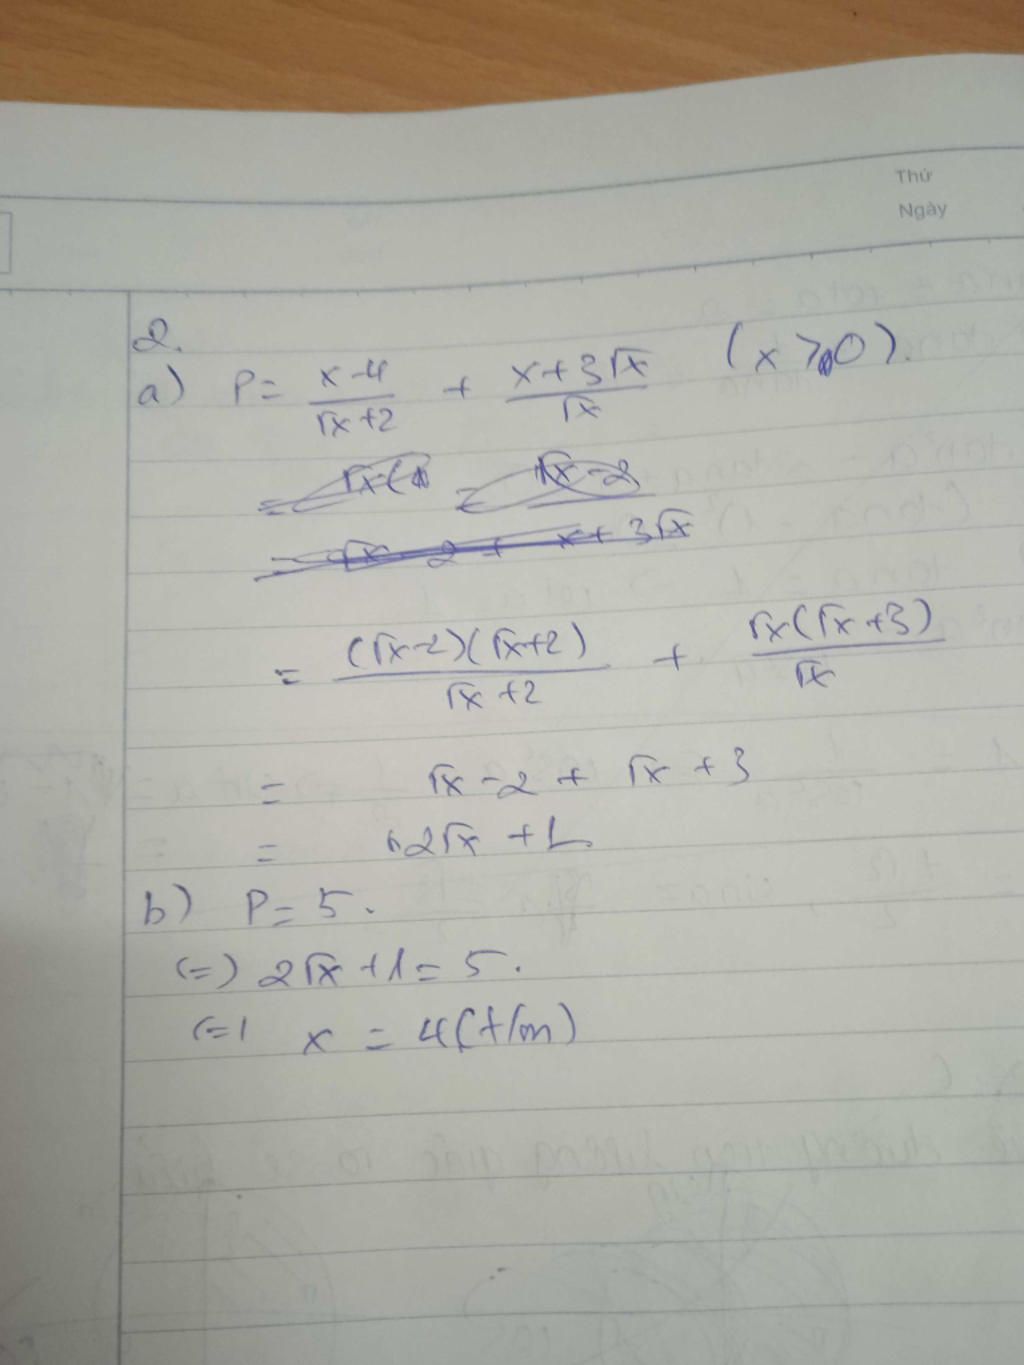 Thứ
Ngày
2.
a) P = \frac{x-4}{\sqrt{x}+2} + \frac{x+3\sqrt{x}}{\sqrt{x}} (x > 0).
= \frac{(\sqrt{x}-2)(\sqrt{x}+2)}{\sqrt{x}+2} + \frac{\sqrt{x}(\sqrt{x}+3)}{\sqrt{x}}
= \sqrt{x} - 2 + \sqrt{x} + 3
= 2\sqrt{x} + 1
b) P = 5.
(=) 2\sqrt{x} + 1 = 5.
(=) x = 4 (t/m)